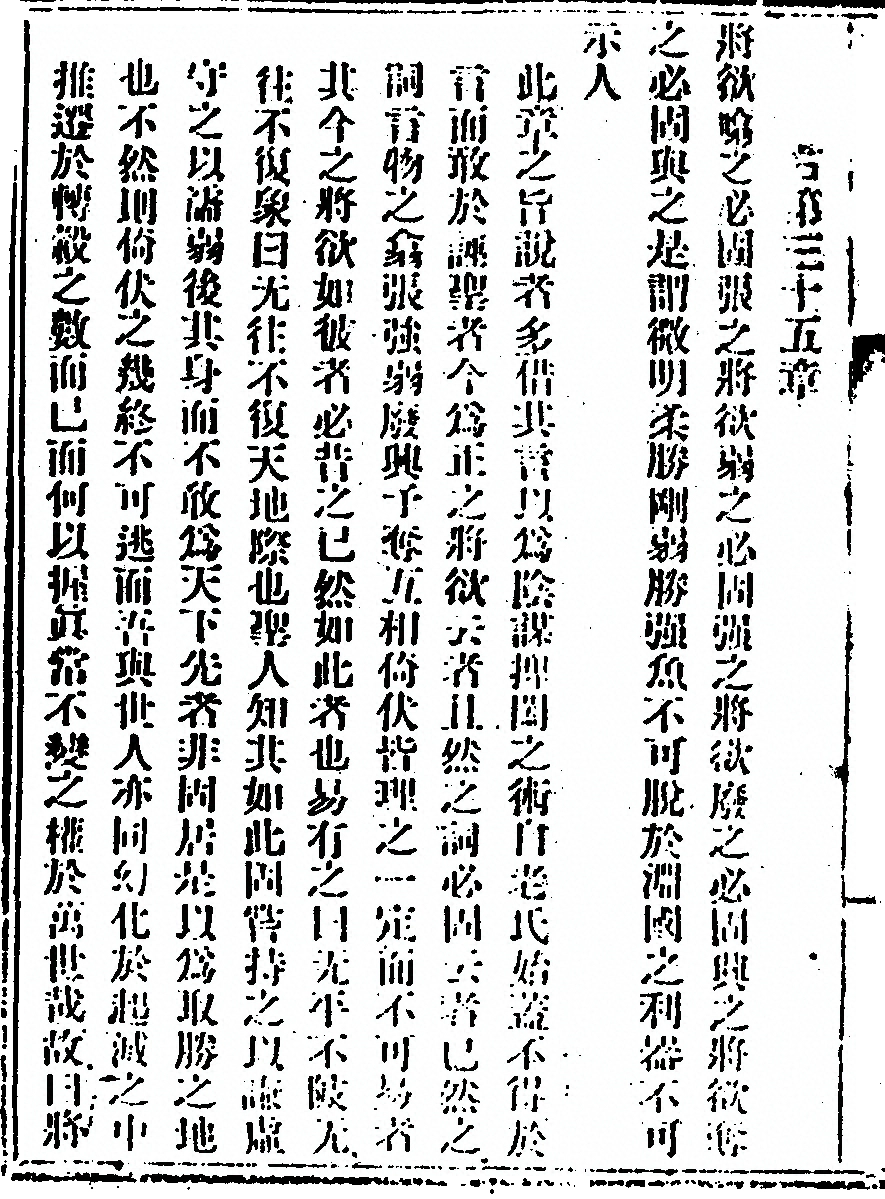 右第三十五章
將欲噏之必固張之將欲弱之必固强之將欲廢之必固興之將欲奪
之必固與之是謂微明柔勝剛弱勝强魚不可脫於淵國之利器不可
示人
此章之旨說者多借其言以爲陰謀捭闔之術自老氏始蓋不得於
言而敢於誣聖者今爲正之將欲云者且然之詞必固云者已然之
詞言物之翕張強弱廢興予奪互相倚伏皆理之一定而不可易者
其今之將欲如彼者必昔之已然如此者也易有之曰无平不陂无
往不復象曰无往不復天地際也聖人知其如此固嘗持之以謙虛
守之以濡弱後其身而不敢爲天下先者非固居是以爲取勝之地
也不然則倚伏之幾終不可逃而吾與世人亦同幻化於起滅之中
推遷於轉轂之數而已而何以握眞常不變之權於萬世哉故曰將